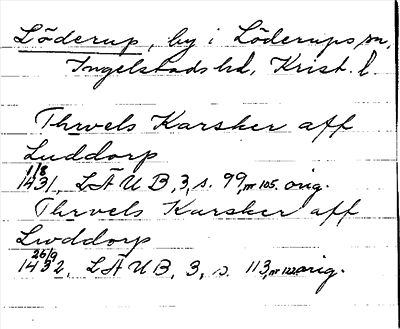 Löderup, by i Löderups sn,
Ingelstads hd, Krist. l.
Thrvels Karsker aff
Luddorp
1/8
1431, LÄUB, 3, s. 99, nr 105. orig.
Thrvels Karsker aff
Lwddorp
26/9
1432, LÄUB, 3, s. 113, nr 122 orig.